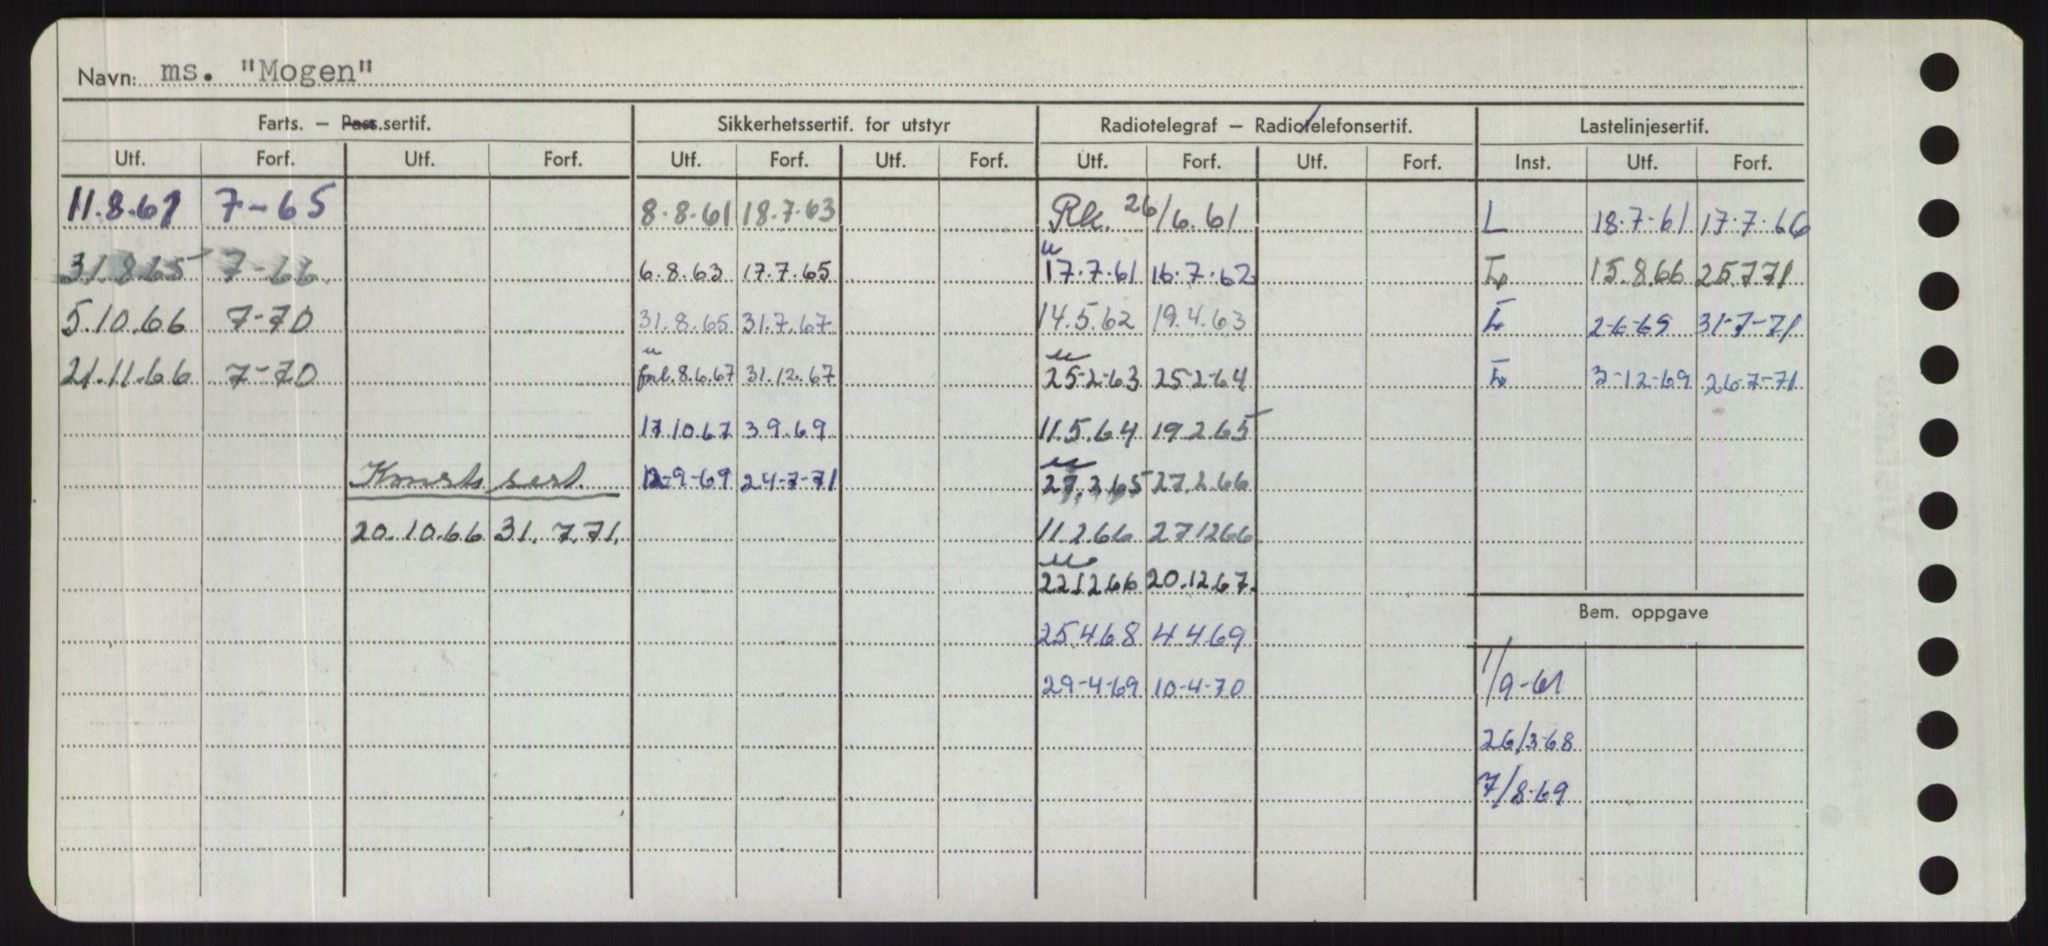 Navn: ms. "Mogen"
Farts. – Pass.sertif. Sikkerhetssertif. for utstyr Radiotelegraf – Radiotelefonsertif. Lastelinjesertif.
Utf. Forf. Utf. Forf. Utf. Forf. Utf. Forf. Utf. Forf. Utf. Forf. Inst. Utf. Forf.
11.8.61 7-65 8.8.61 18.7.63 Rk. 26/6.61 L 18.7-61 17.7.66
31.8.65 7-66 6.8.63 17.7.65 u 17.7.61 16.7.62 15.8.66 25.7.71
5.10.66 7-70 31.8.65 31.7.67 14.5.62 19.4.63 2-6-69 31-7-71
21.11.66 7-70 u forl. 8.6.67 31.12.67 u 25-2-63 25-2-64 3-12-69 26-7-71
17.10.67 3.9.69 11.5.64 19.2.65
Konstr sert 12-9-69 24-7-71 u 27.2.65 27.2.66
20.10.66 31.7.71. 11.2.66 27.12.66
u 22.12.66 20.12.67.
25.4.68 4.4.69
29-4-69 10-4-70
Bem. oppgave
1/9-61
26/3-68
7/8-69